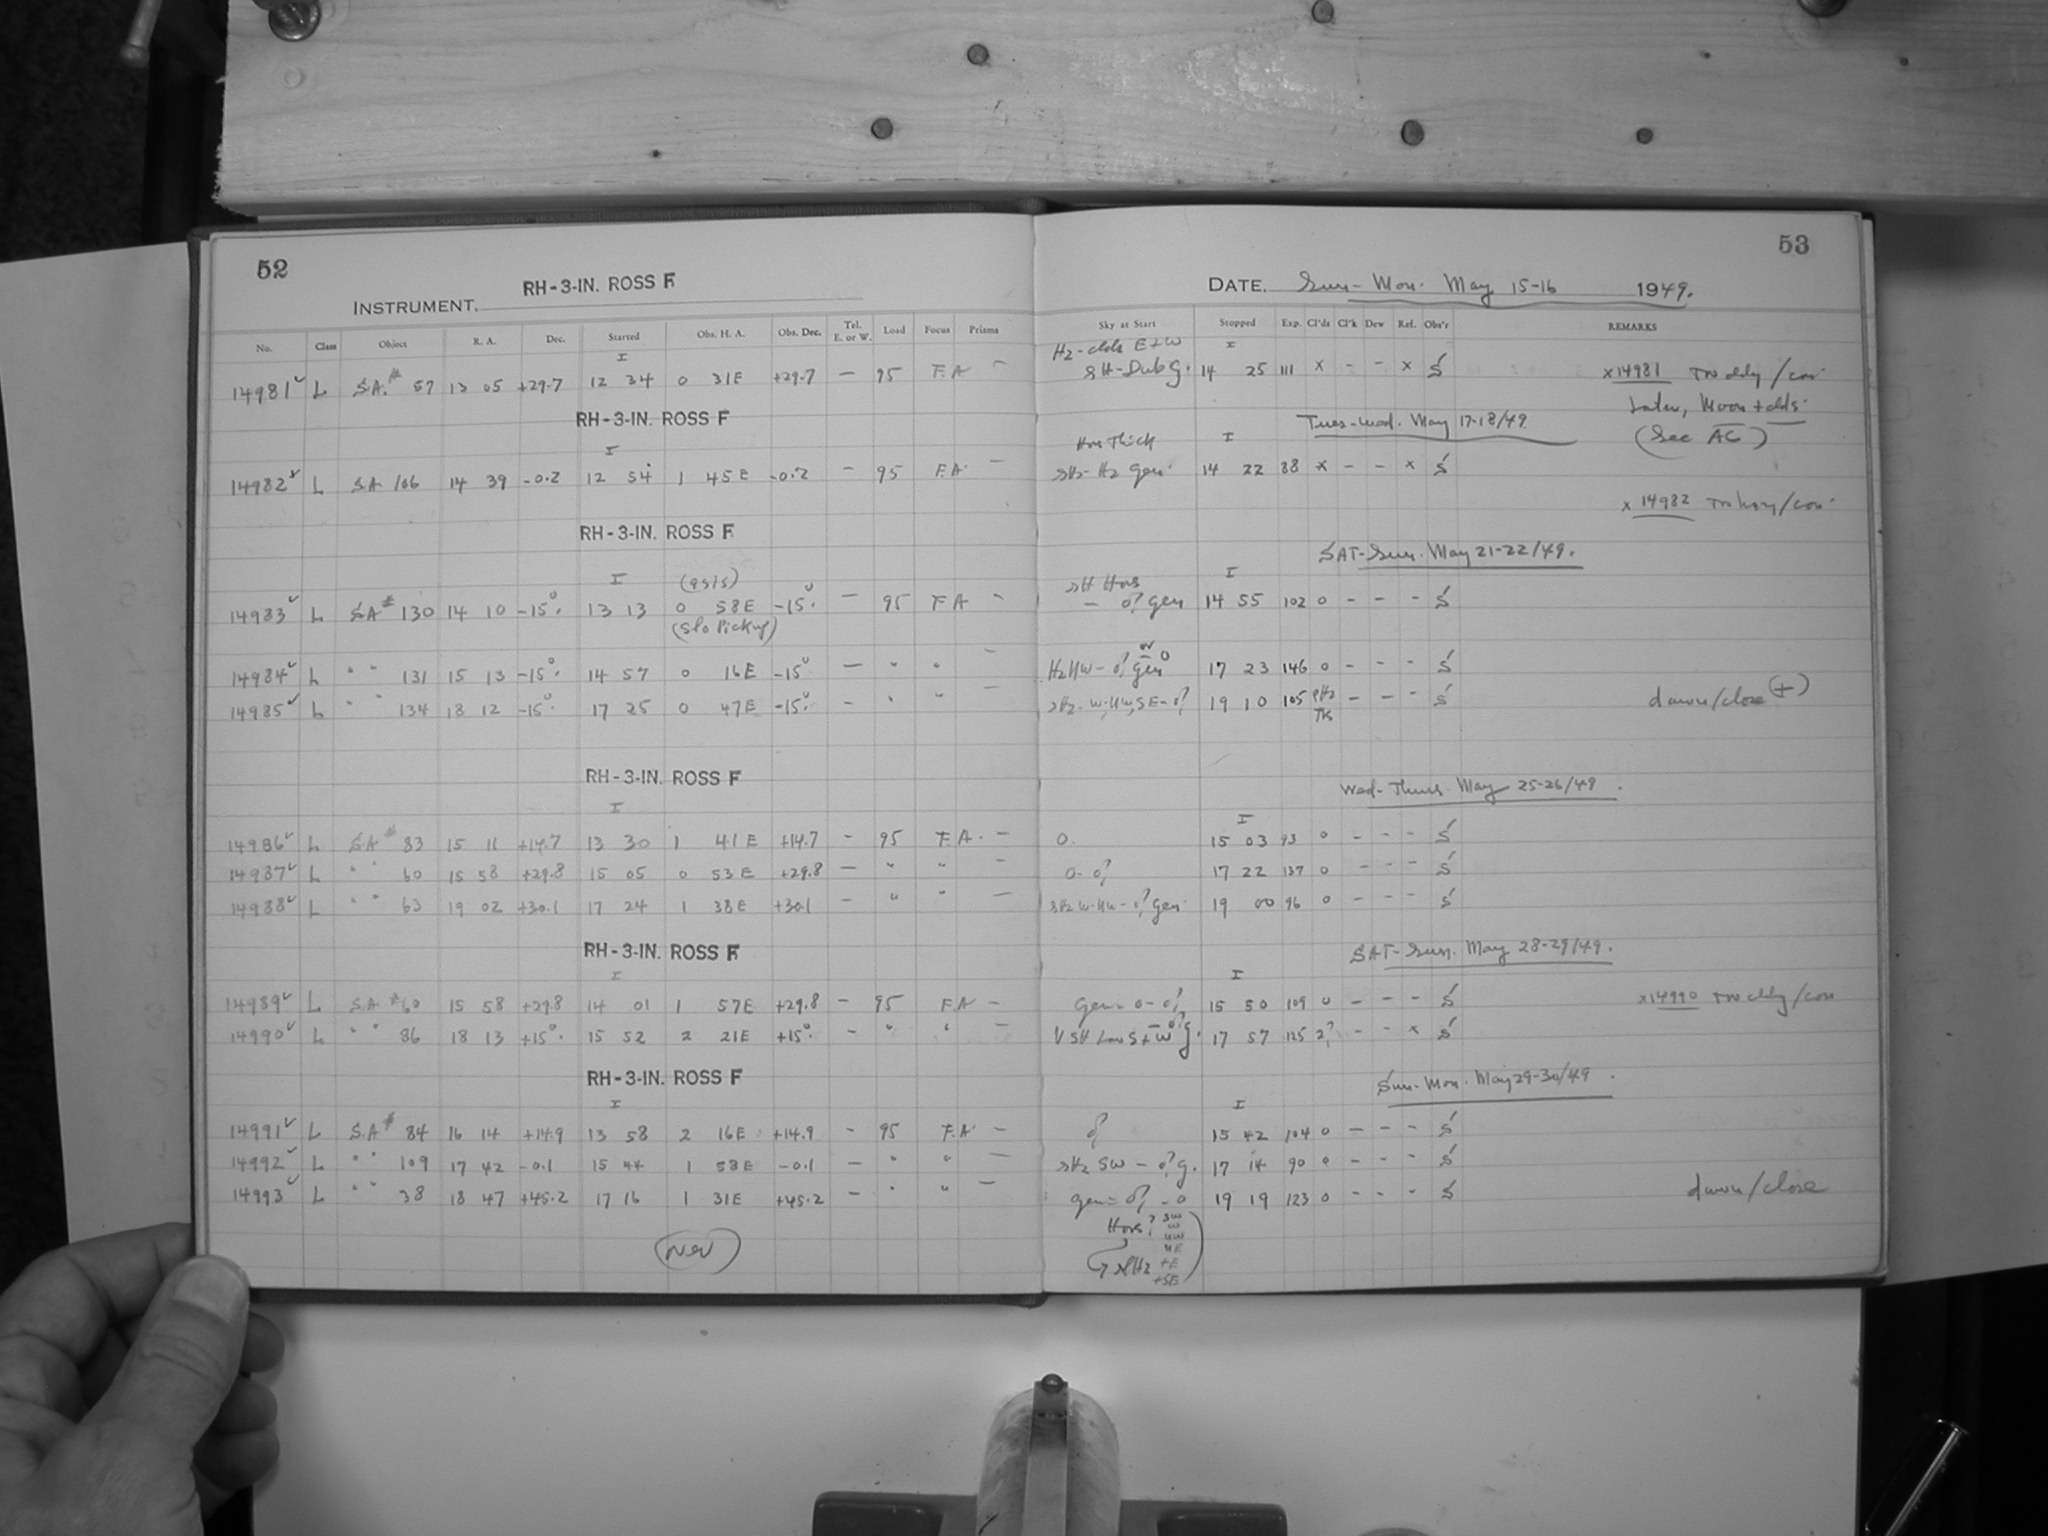 52
RH-3-IN. ROSS F
INSTRUMENT.
No. Class Object R. A. Dec. Started Obs. H. A. Obs. Dec. Tel. E. or W. Load Focus Prisms
I
14981 L S.A.# 57 13 05 +29.7 12 34 0 31E +29.7 — 95 F.A —
RH-3-IN. ROSS F
I
14982 L SA 106 14 39 -0.2 12 54 1 45E -0.2 — 95 F.A. —
RH-3-IN. ROSS F
I (9515)
14983 L SA# 130 14 10 -15° 13 13 0 58E -15° — 95 F A -
(Slo Pickup)
14984 L " " 131 15 13 -15° 14 57 0 16E -15° — " " —
14985 L " " 134 18 12 -15° 17 25 0 47E -15° - " " —
RH-3-IN. ROSS F
I
14986 L S.A# 83 15 11 +14.7 13 30 1 41E +14.7 - 95 F A. —
14987 L " " 60 15 58 +29.8 15 05 0 53E +29.8 — " " -
14988 L " " 63 19 02 +30.1 17 24 1 38E +30.1 - " " —
RH-3-IN. ROSS F
I
14989 L S.A # 60 15 58 +29.8 14 01 1 57E +29.8 - 95 F.A —
14990 L " " 86 18 13 +15° 15 52 2 21E +15° - " " —
RH-3-IN. ROSS F
I
14991 L S.A# 84 16 14 +14.9 13 58 2 16E +14.9 - 95 F.A —
14992 L " " 109 17 42 -0.1 15 44 1 58E -0.1 — " " —
14993 L " " 38 18 47 +45.2 17 16 1 31E +45.2 — " " —
53
DATE, Sun-Mon. May 15-16 1949.
Sky at Start Stopped Exp. Cl'ds Cl'k Dew Ref. Obs'r REMARKS
Hz-clds E+W I
sH-Dub g. 14 25 111 x - - x S x14981
Later, Moon + clds
Tues-Wed. May 17-18/49
(See AC)
Hors Thick I
sHz-Hz gen. 14 22 88 x - - x S
x 14982
SAT-Sun. May 21-22/49.
sH Hors I
- o? gen 14 55 102 0 - - - S
or
Hz NW - o? gen 0 17 23 146 0 - - - S
sHz. W, NW, SE - o? 19 10 105 - - - S dawn/close (+)
Wed-Thurs. May 25-26/49.
I
0. 15 03 93 0 - - - S
0 - o? 17 22 137 0 - - - S
sHz W-NW - o? gen. 19 00 96 0 - - - S
SAT-Sun. May 28-29/49.
I
gen = 0 - o? 15 50 109 0 - - - S x14990
V SH Low S + W g. 17 57 125 2? - - x S
Sun-Mon. May 29-30/49.
I
o? 15 42 104 0 - - - S
sHz SW - o? g. 17 14 90 0 - - - S
gen = o? - 0 19 19 123 0 - - - S dawn/close
Hors? SW
W
NW
NE
sHz +E
+SE